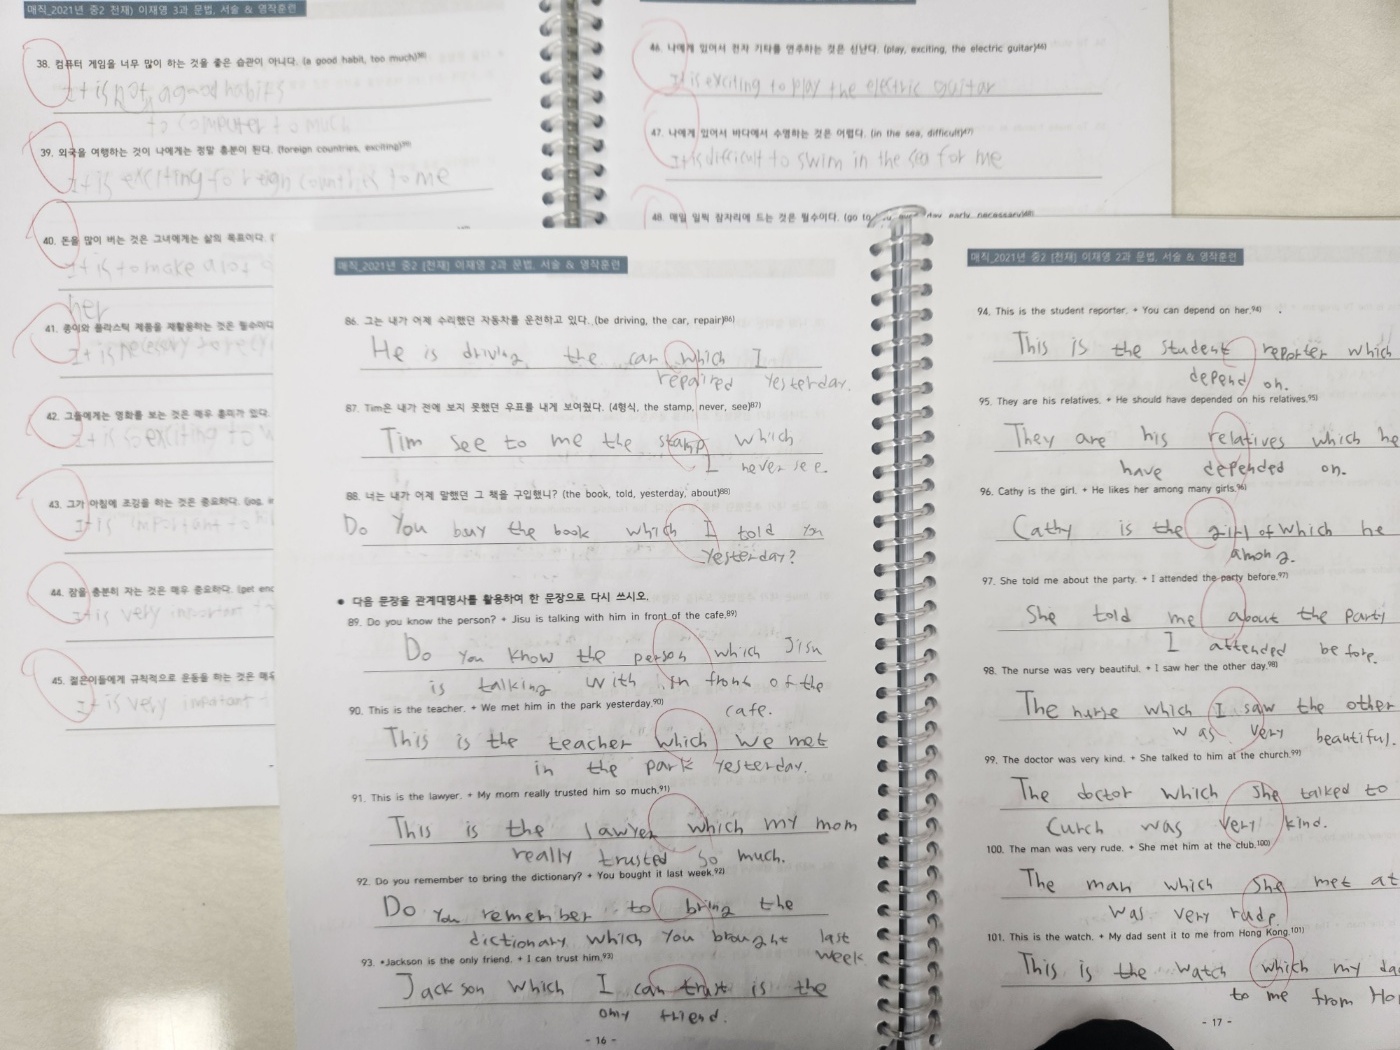 매직_2021년 중2 천재) 이재영 3과 문법, 서술 & 영작훈련
38. 컴퓨터 게임을 너무 많이 하는 것을 좋은 습관이 아니다. (a good habit, too much)
It is not a good habits
to computer to much
39. 외국을 여행하는 것이 나에게는 정말 흥분이 된다. (foreign countries, exciting)
It is exciting foreign countries to me
40. 돈을 많이 버는 것은 그녀에게는 삶의 목표이다. (
It is to make a lot
her
41. 종이와 플라스틱 제품을 재활용하는 것은 필수이다
It is necessary to
42. 그들에게는 영화를 보는 것은 매우 흥미가 있다.
It is so exciting to
43. 그가 아침에 조깅을 하는 것은 중요하다. (jog,
It is important to
44. 잠을 충분히 자는 것은 매우 중요하다. (get
It is very important
45. 젊은이들에게 규칙적으로 운동을 하는 것은 매우
It is very impotant t
46. 나에게 있어서 전자 기타를 연주하는 것은 신난다. (play, exciting, the electric guitar)46)
It is exciting to play the electric guitar
47. 나에게 있어서 바다에서 수영하는 것은 어렵다. (in the sea, difficult)47)
It is difficult to swim in the sea for me
48. 매일 일찍 잠자리에 드는 것은 필수이다. (go to day, early, necessary)48)
매직_2021년 중2 [천재] 이재영 2과 문법, 서술 & 영작훈련
86. 그는 내가 어제 수리했던 자동차를 운전하고 있다. (be driving, the car, repair)86)
He is driving the car which I
repaired yesterday.
87. Tim은 내가 전에 보지 못했던 우표를 내게 보여줬다. (4형식, the stamp, never, see)87)
Tim see to me the stamp which
I never see.
88. 너는 내가 어제 말했던 그 책을 구입했니? (the book, told, yesterday, about)88)
Do You buy the book which I told you
yesterday?
● 다음 문장을 관계대명사를 활용하여 한 문장으로 다시 쓰시오.
89. Do you know the person? + Jisu is talking with him in front of the cafe.89)
Do you know the person which Jisu
is talking with in front of the
cafe.
90. This is the teacher. + We met him in the park yesterday.90)
This is the teacher which we met
in the park yesterday.
91. This is the lawyer. + My mom really trusted him so much.91)
This is the lawyer which my mom
really trusted so much.
92. Do you remember to bring the dictionary? + You bought it last week.92)
Do you remember to bring the
dictionary which you brought last
week
93. *Jackson is the only friend. + I can trust him.93)
Jackson which I can trust is the
only friend.
- 16 -
매직_2021년 중2 [천재] 이재영 2과 문법, 서술 & 영작훈련
94. This is the student reporter. + You can depend on her.94)
This is the student reporter which
depend on.
95. They are his relatives. + He should have depended on his relatives.95)
They are his relatives which he
have depended on.
96. Cathy is the girl. + He likes her among many girls.96)
Cathy is the girl of which he
among.
97. She told me about the party. + I attended the party before.97)
She told me about the party
I attended before.
98. The nurse was very beautiful. + I saw her the other day.98)
The nurse which I saw the other
was very beautiful.
99. The doctor was very kind. + She talked to him at the church.99)
The doctor which she talked to
Curch was very kind.
100. The man was very rude. + She met him at the club.100)
The man which she met at
was very rude.
101. This is the watch. + My dad sent it to me from Hong Kong.101)
This is the watch which my da
to me from Ho
- 17 -